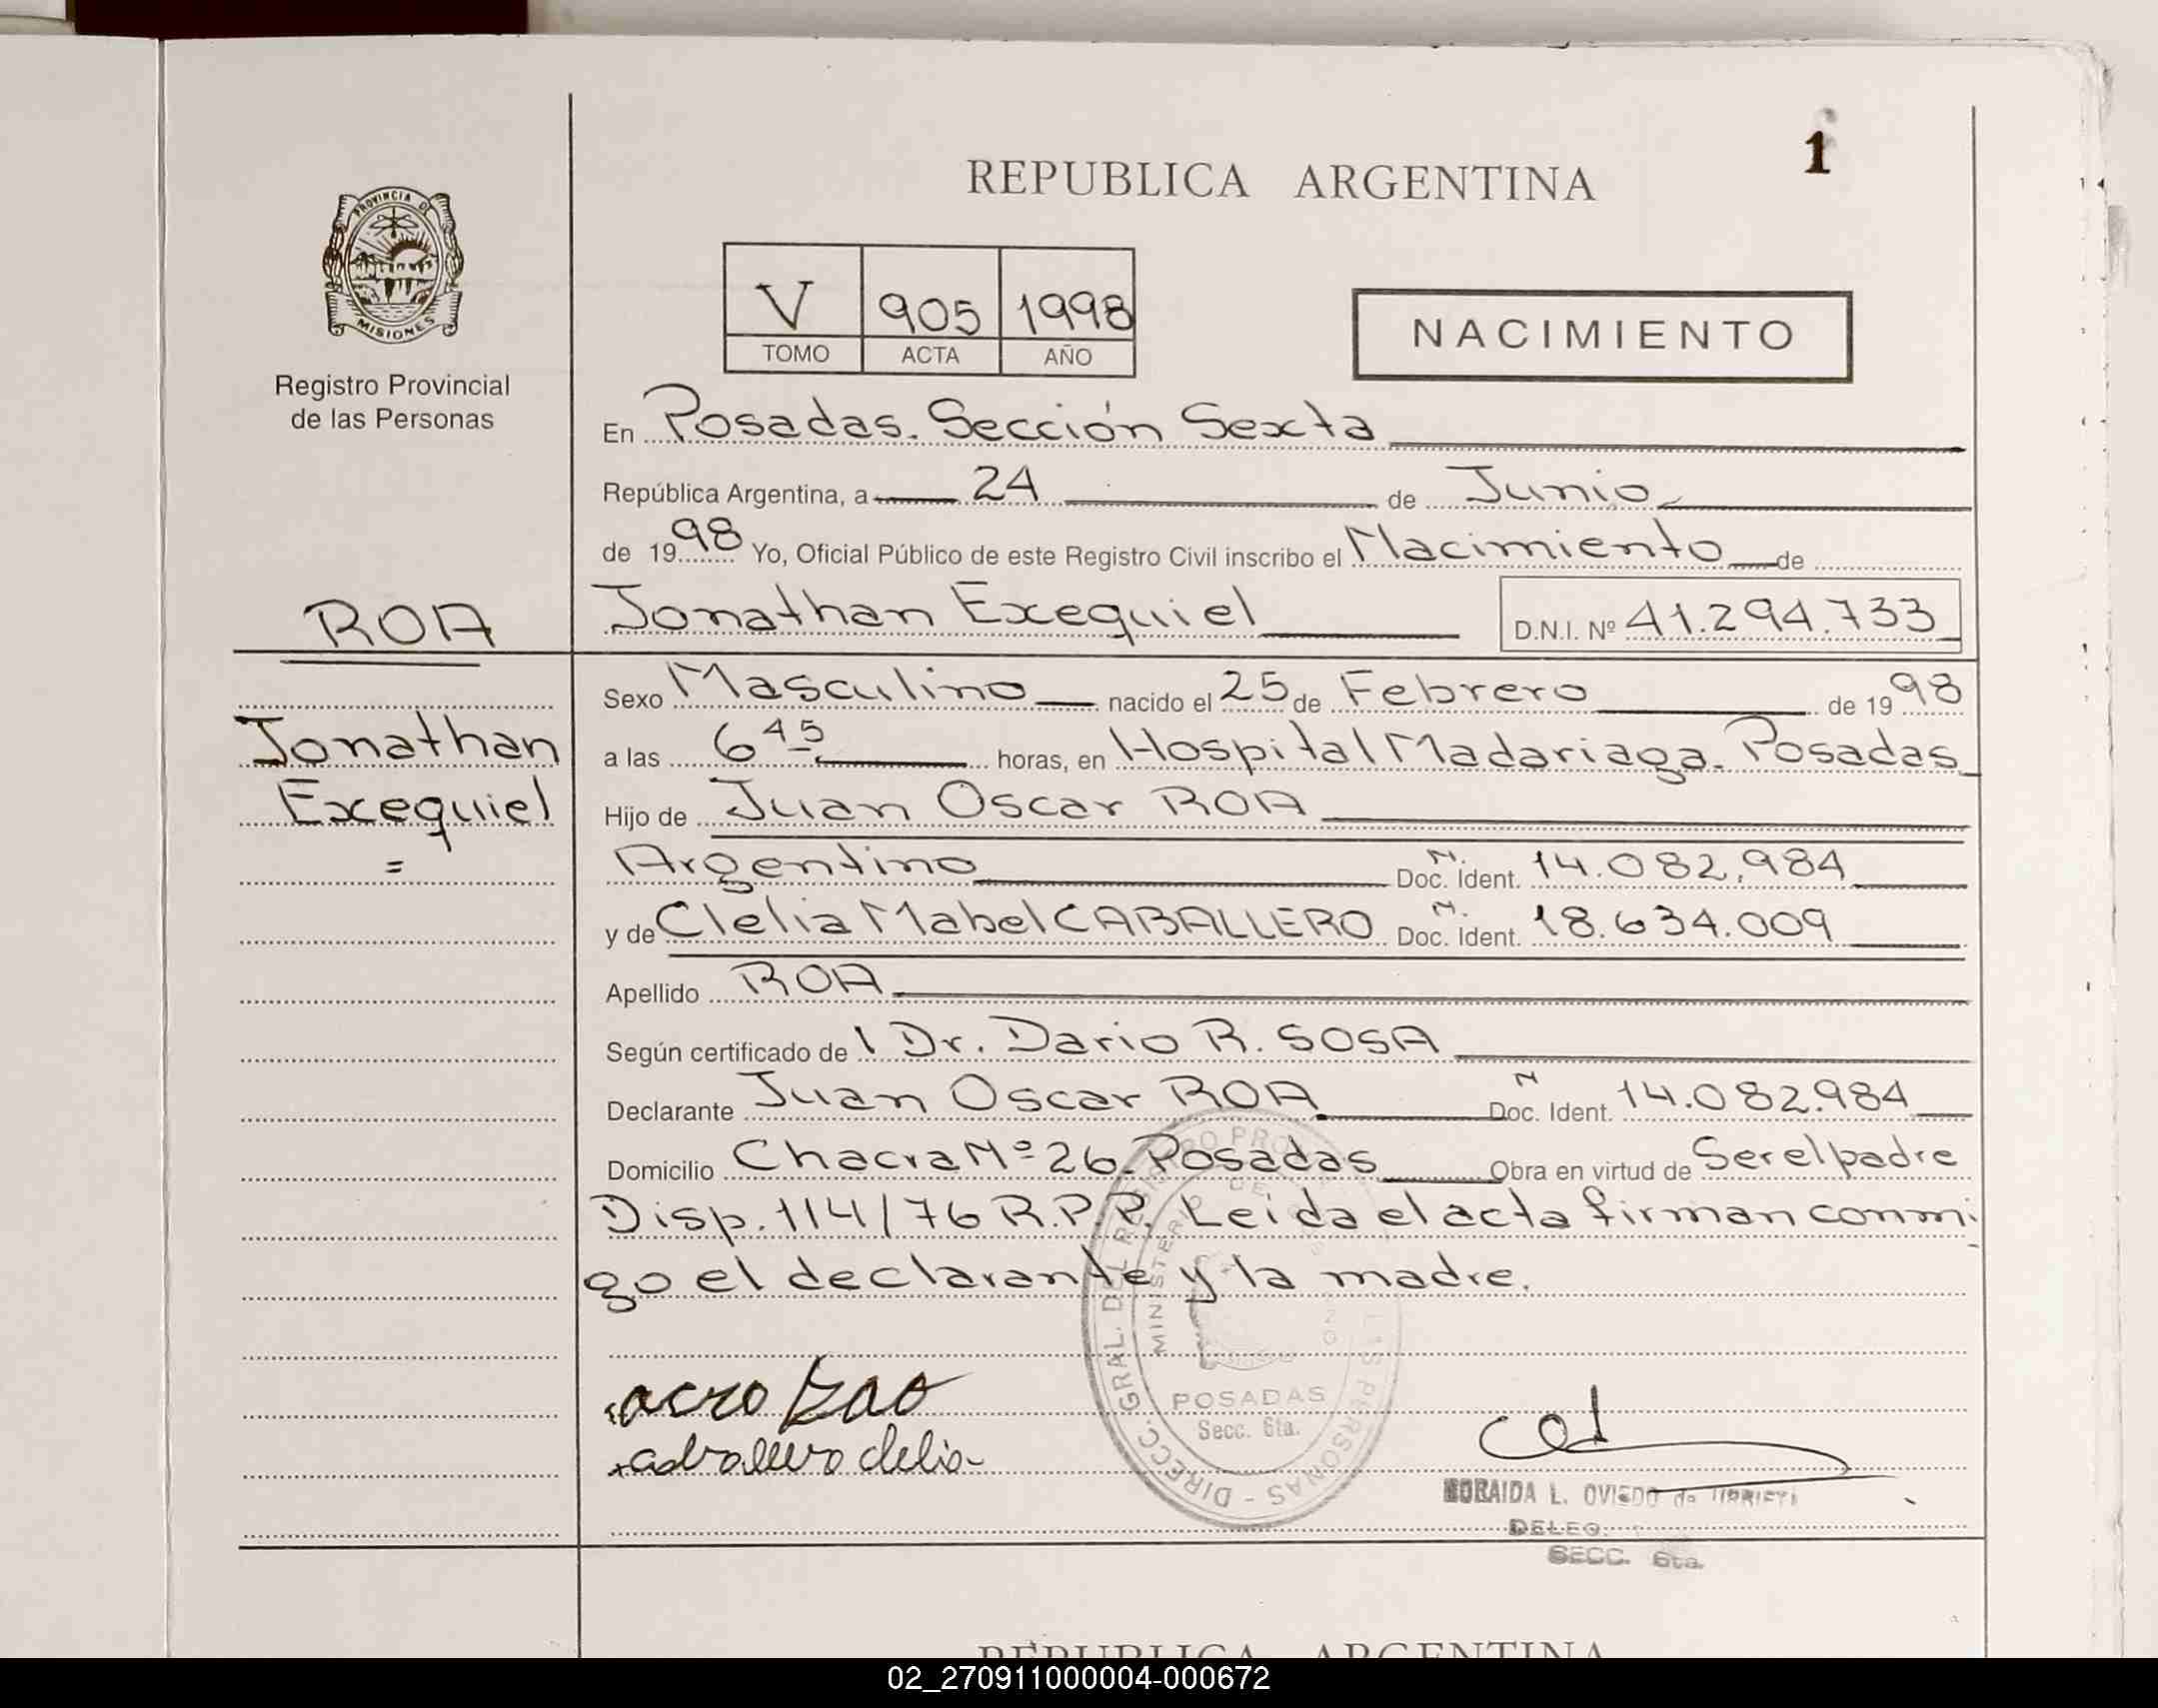 1
REPUBLICA ARGENTINA
PROVINCIA DE
MISIONES
Registro Provincial
de las Personas
V 905 1998
TOMO ACTA AÑO
NACIMIENTO
En Posadas. Sección Sexta
República Argentina, a 24 de Junio
de 1998 Yo, Oficial Público de este Registro Civil inscribo el Nacimiento de
ROA
Jonathan Exequiel D.N.I. Nº 41.294.733
Jonathan
Exequiel
=
Sexo Masculino nacido el 25 de Febrero de 1998
a las 6 45 horas, en Hospital Madariaga. Posadas
Hijo de Juan Oscar ROA
Argentino N. Doc. Ident. 14.082.984
y de Clelia Mabel CABALLERO N. Doc. Ident. 18.634.009
Apellido ROA
Según certificado de l Dr. Dario R. SOSA
Declarante Juan Oscar ROA N Doc. Ident. 14.082.984
Domicilio Chacra Nº 26. Posadas Obra en virtud de Ser el padre
Disp. 114/76 R.P.P. Leida el acta firman conmi
go el declarante y la madre.
DIRECC. GRAL. DEL REGISTRO
MINISTERIO DE
LAS PERSONAS
POSADAS
Secc. 6ta.
L. OVIEDO de
DELEG.
SECC. 6ta.
REPUBLICA ARGENTINA
02_270911000004-000672